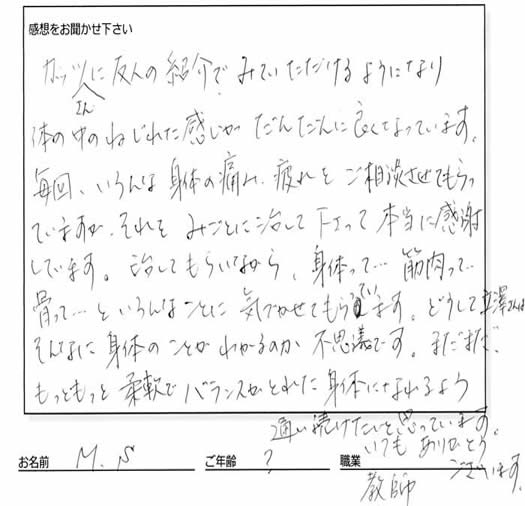 感想をお聞かせ下さい
カッツさんに友人の紹介でみていただけるようになり
体の中のねじれた感じがだんだんに良くなっています。
毎回、いろんな身体の痛み、疲れをご相談させてもらっ
ていますが、それをみごとに治して下さって本当に感謝
しています。治してもらいながら、身体って…筋肉って…
骨って…といろんなことに気づかせてもらってい
ます。どうして立澤さんは
そんなに身体のことがわかるのか不思議です。まだまだ、
もっともっと柔軟でバランスがとれた身体になれるよう
通い続けたいと思っています。
いつもありがとう
ございます。
お名前 M.S ご年齢 ? 職業 教師